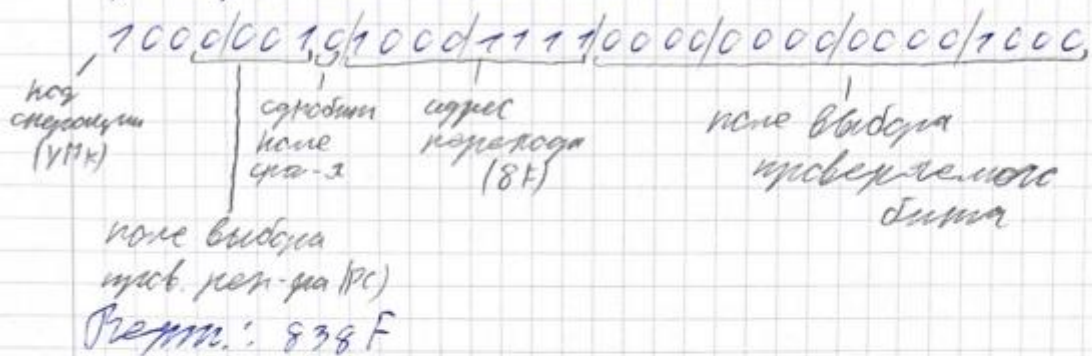 1000/0010/1000/1111/0000/0000/0000/1000
код операции (УМК)
однобит. поле сра-я
адрес перехода (8F)
поле выбора проверяемого бита
поле выбора
пров. рег-ра (РС)
838F